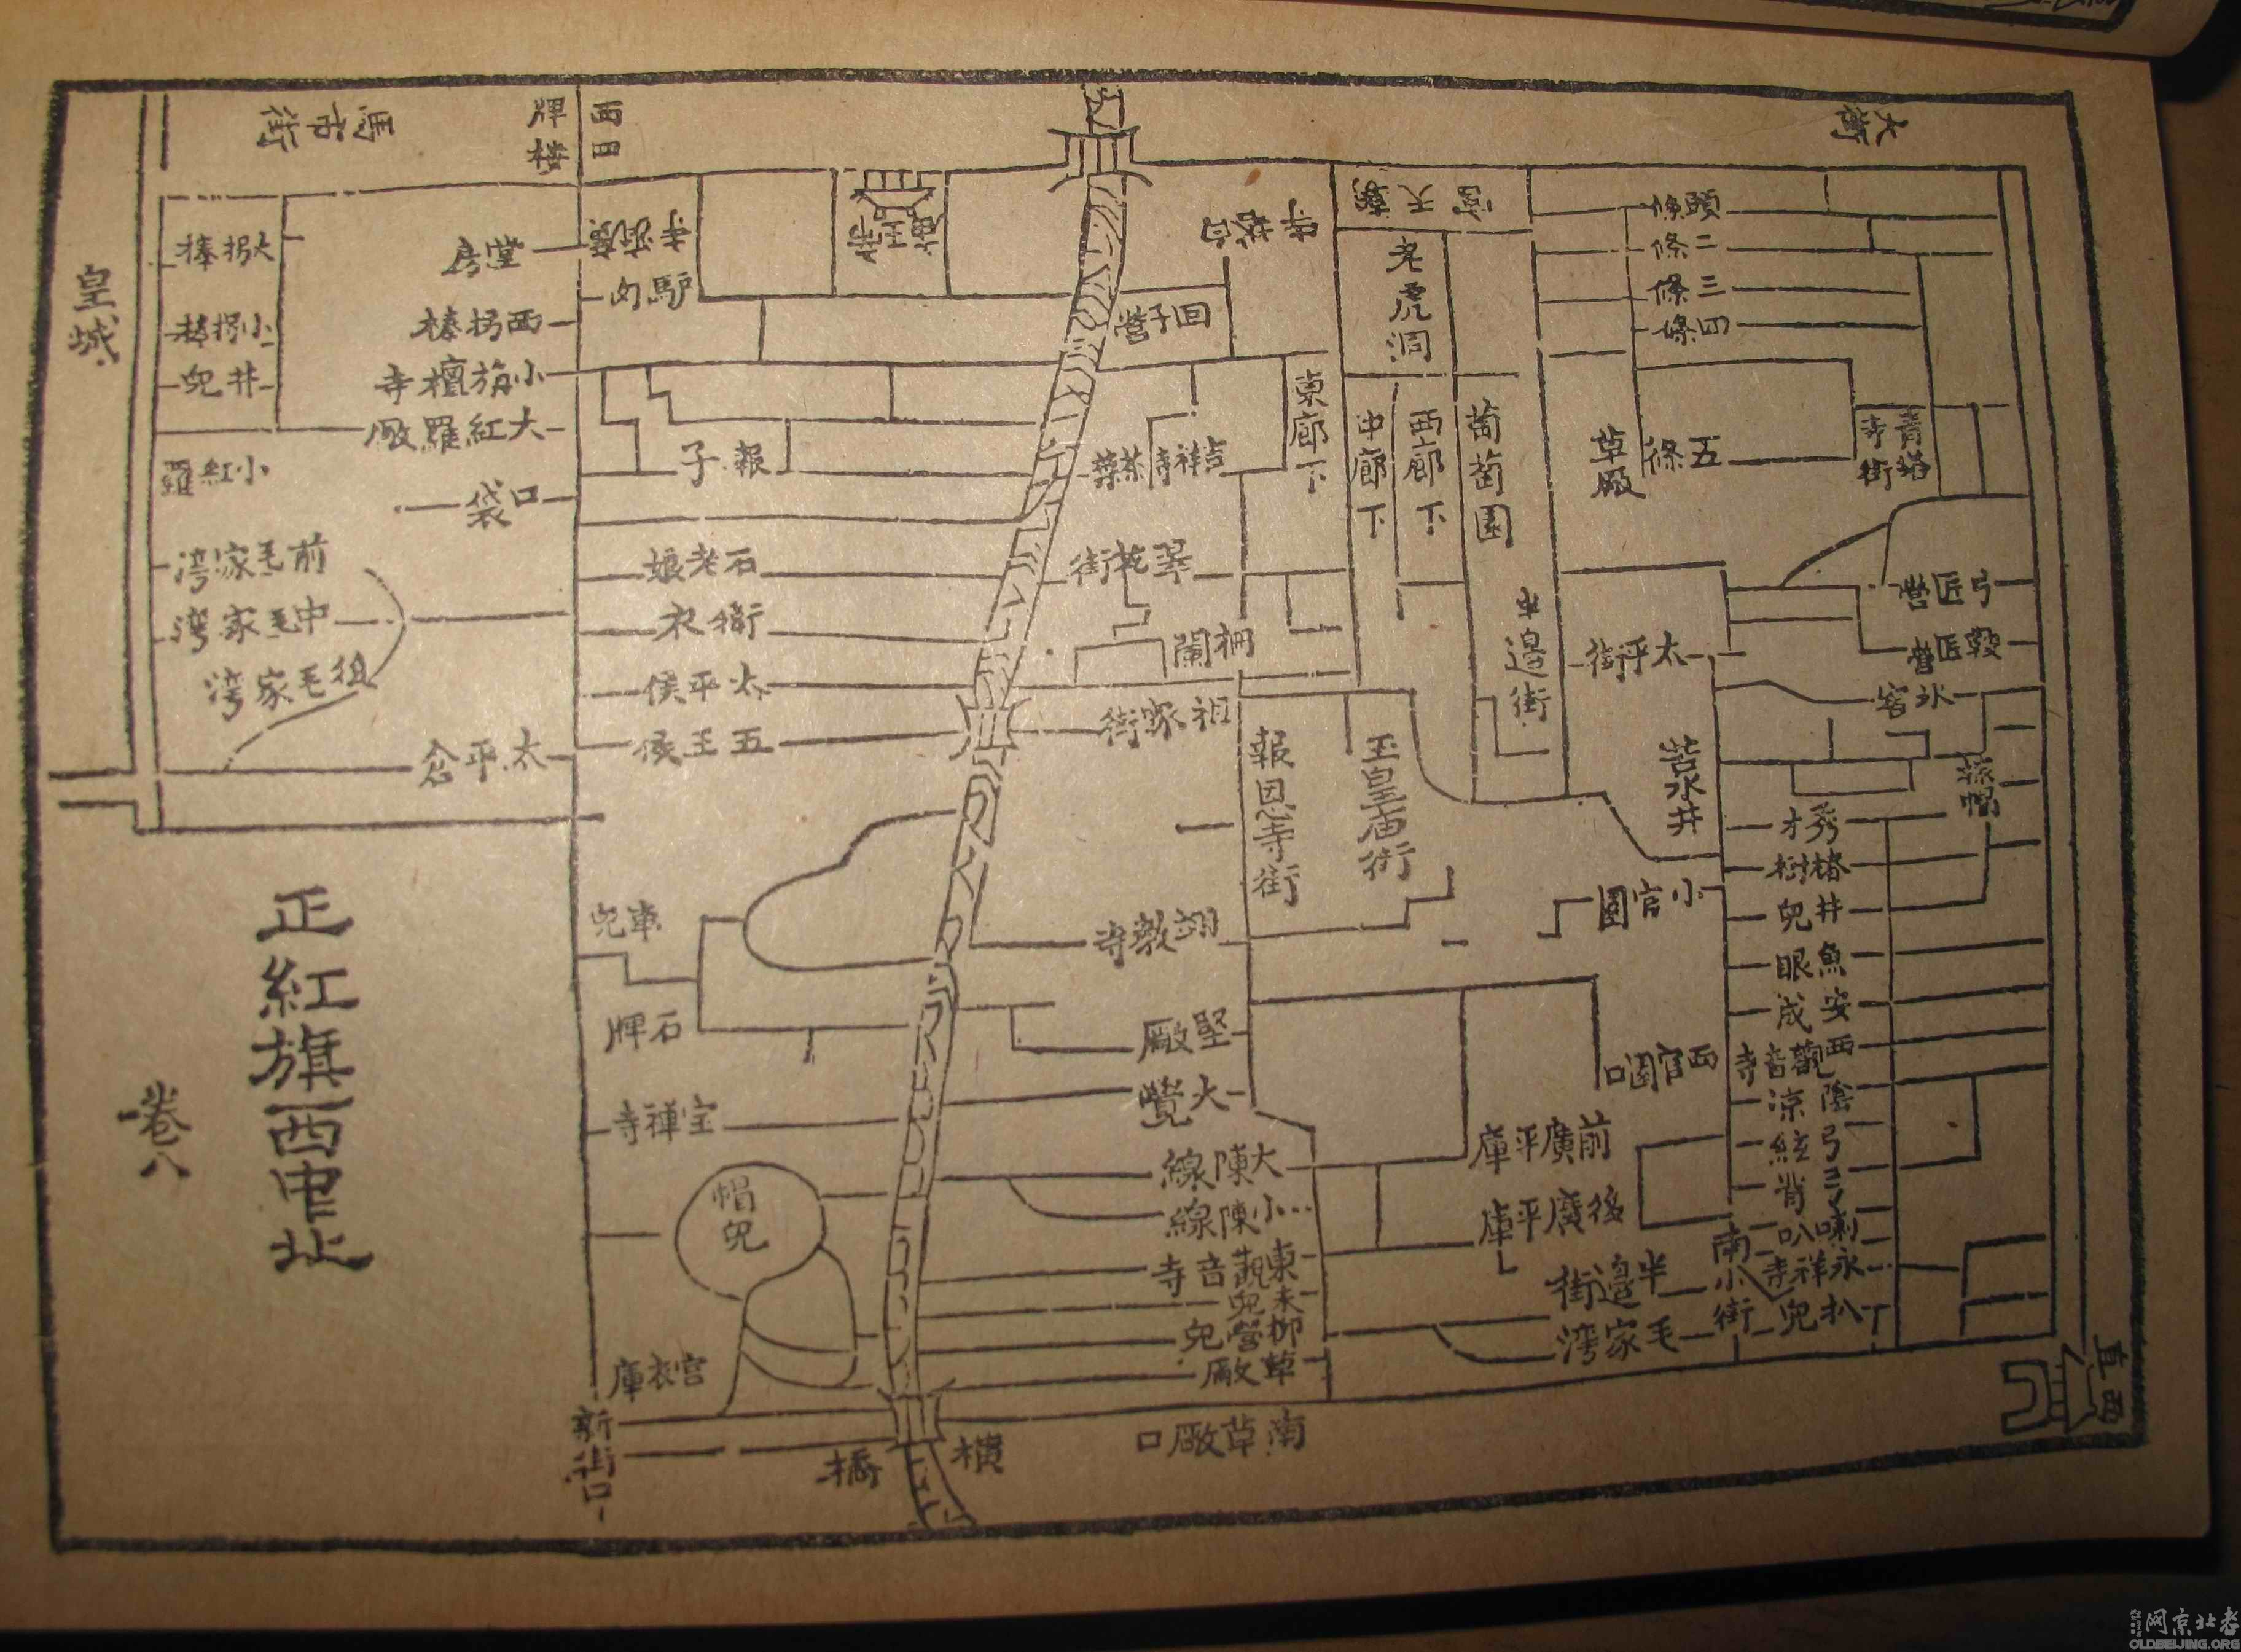 正紅旗西中北
卷八
皇城
馬市街
西四
牌樓
大街
大拐棒
小拐棒
井兒
小紅羅
前毛家湾
中毛家湾
後毛家湾
堂房
西拐棒
小旃檀寺
大紅羅廠
口袋
太平仓
驴肉
帝王庙
報子
石老娘
衛衣
太平侯
五王侯
車兒
石牌
宝禅寺
帽兒
官衣庫
新街口
橫橋
南草廠口
白塔寺
回子營
吉祥寺茶葉
翠花街
柵闌
祖家街
翊教寺
堅廠
大覺
大陳線
小陳線
東觀音寺
未兒
柳營兒
草廠
朝天宮
老虎洞
東廊下
中廊下
西廊下
葡萄園
半邉街
報恩寺街
玉皇庙街
頭條
二條
三條
四條
五條
草厰
青塔寺街
太平街
弓匠營
轂匠營
氷窖
苦水井
小官園
秀才
椿樹
井兒
魚眼
安成
西觀音寺
陰凉
弓絃
喇叭
永祥寺
扒兒
西官園口
前廣平庫
後廣平庫
半邉街
毛家湾
南小街
西直
老北京网
OLDBEIJING.ORG